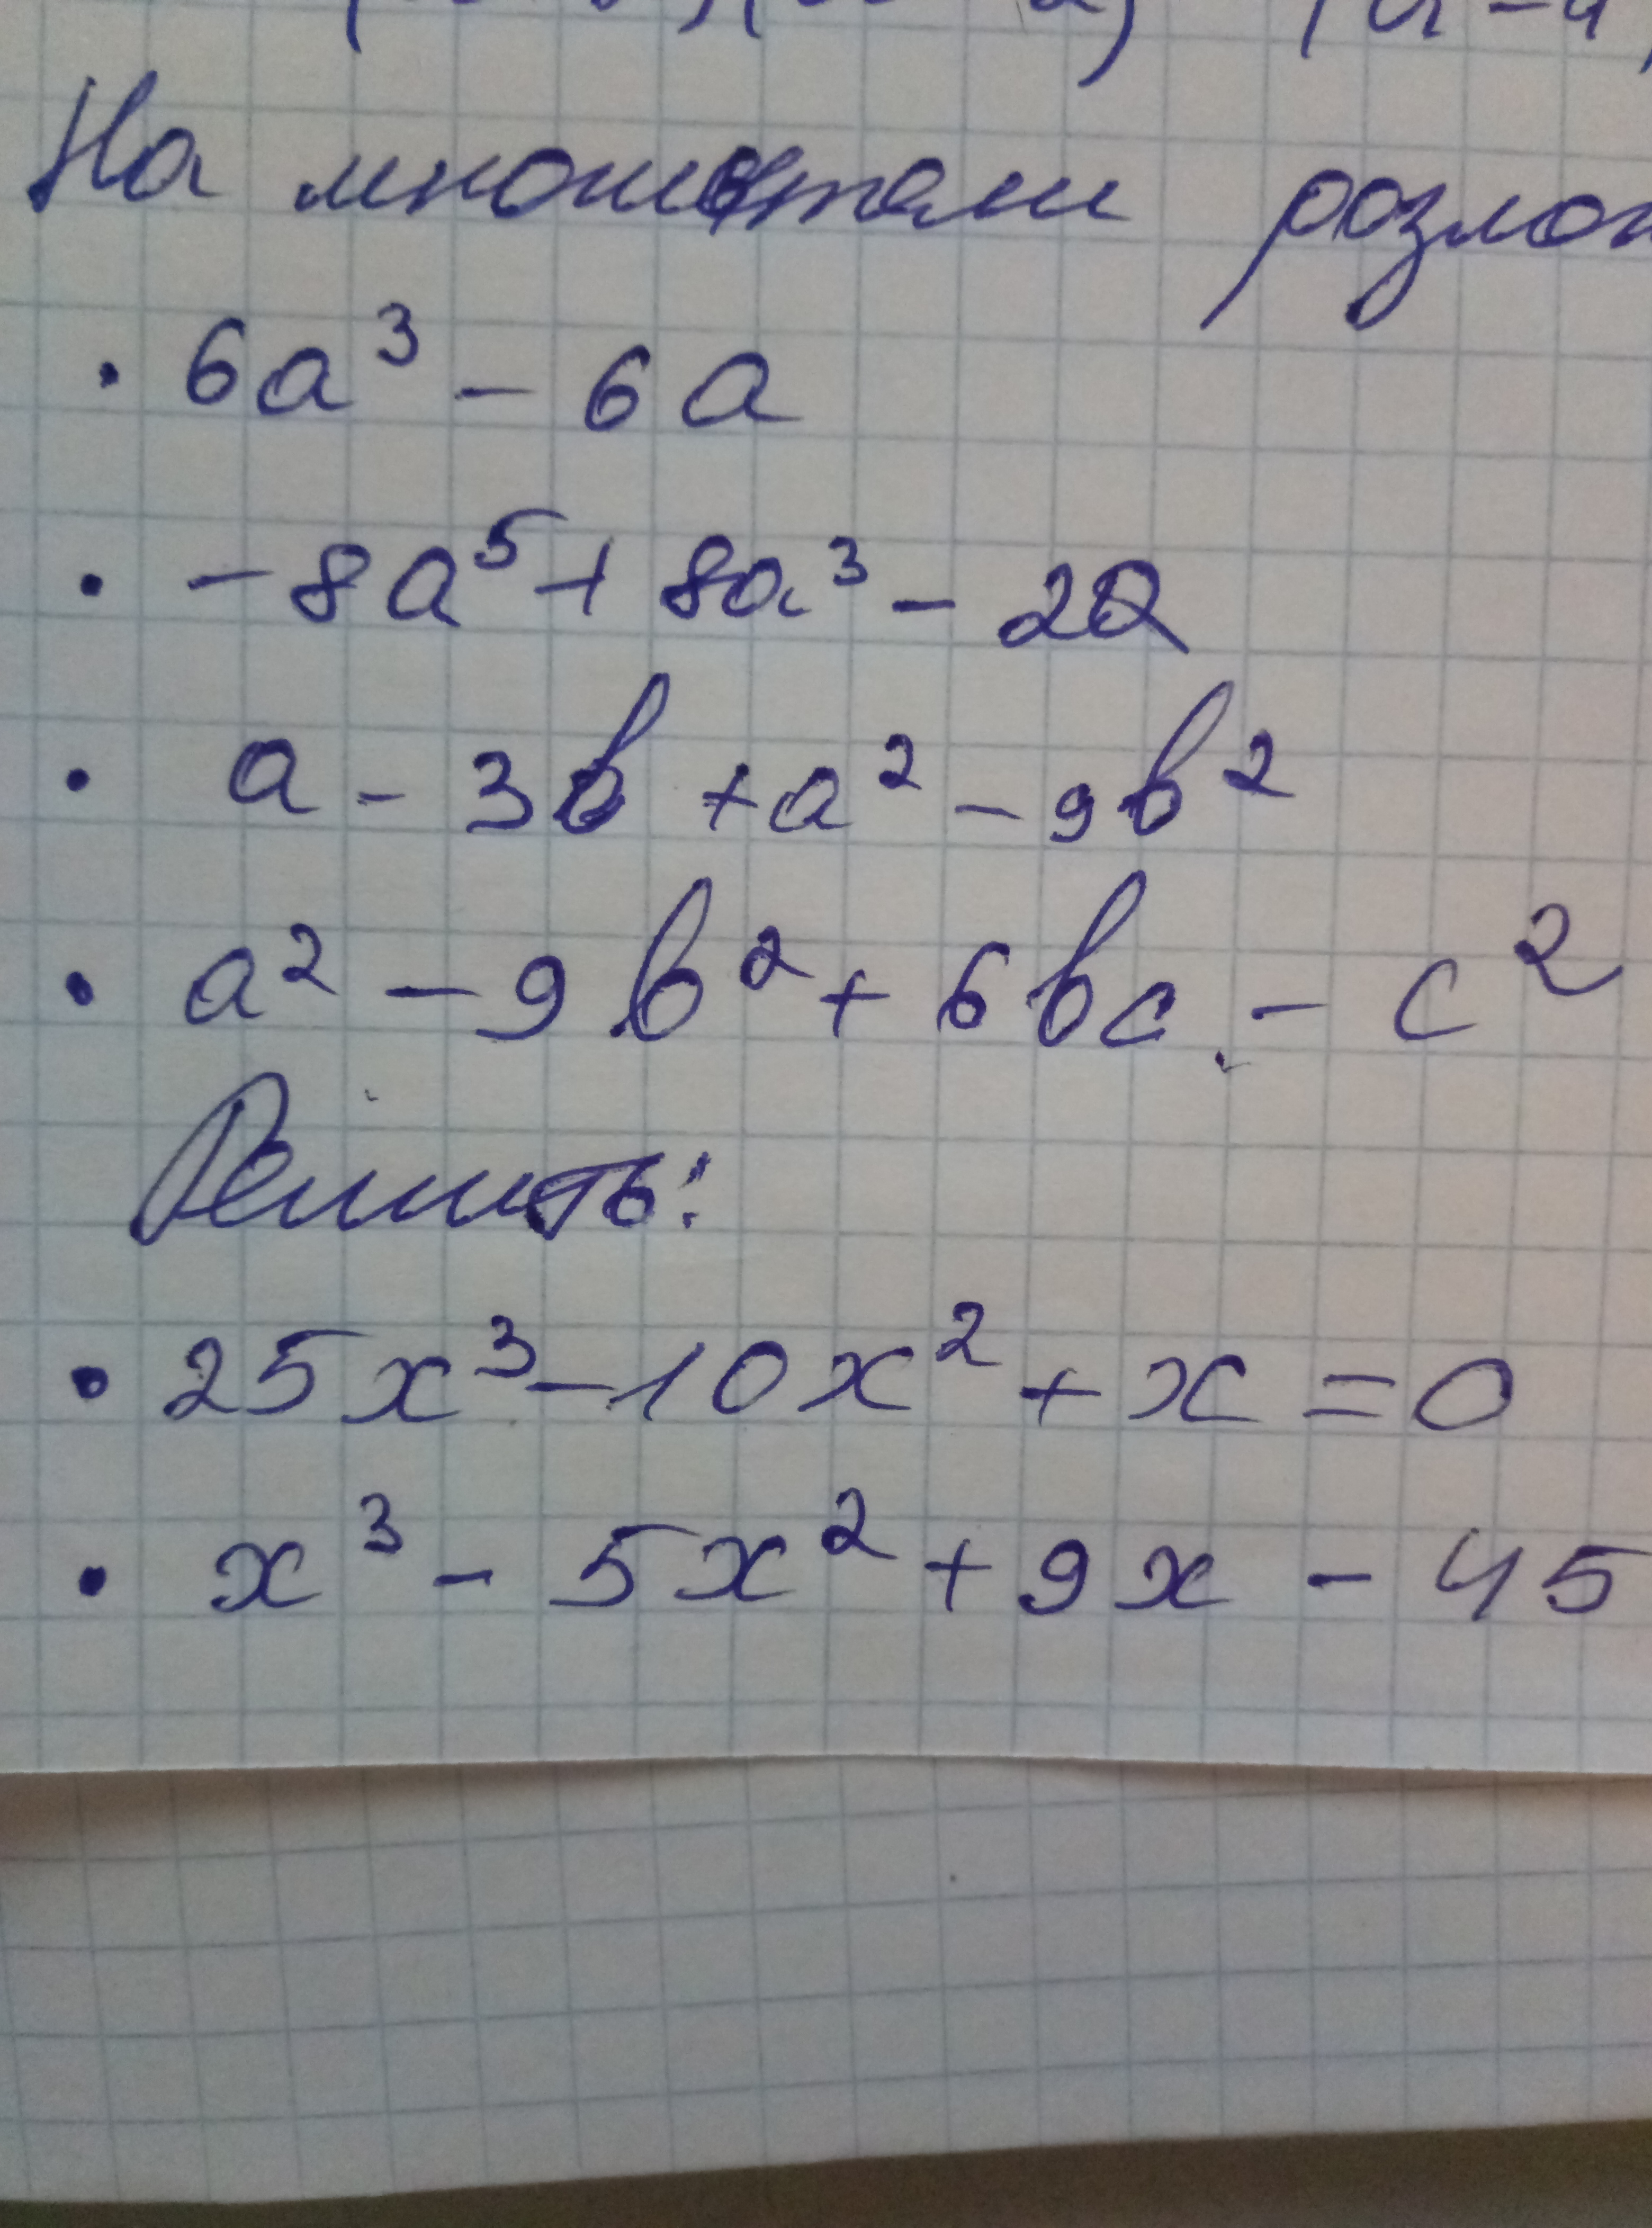 На множетели розлож
· 6a³ - 6a
· -8a⁵ + 8a³ - 2a
· a - 3b + a² - 9b²
· a² - 9b² + 6bc - c²
Решить:
· 25x³ - 10x² + x = 0
· x³ - 5x² + 9x - 45